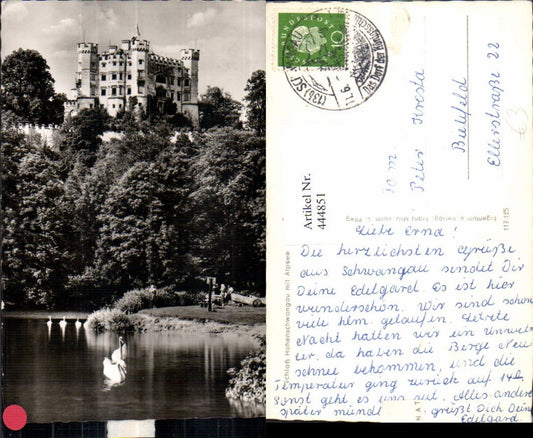 DEUTSCHE
BUNDESPOST
10
Fam.
Peter Kresta
Bielefeld
Ellerstraße 22
63
Artikel Nr.
444851
Schloß Hohenschwangau mit Alpsee
Eigentum u. Verlag
117/125
NAT
Liebe Erna!
Die herzlichsten Grüße
aus Schwangau sendet Dir
Deine Edelgard. Es ist hier
wunderschön. Wir sind schon
viele klm. gelaufen. Letzte
Nacht hatten wir ein Unwet-
ter, da haben die Berge Neu
schnee bekommen, und die
Temperatur ging zurück auf 14
Sonst geht es uns gut. Alles andere
später mündl. grüßt Dich Deine
Edelgard.